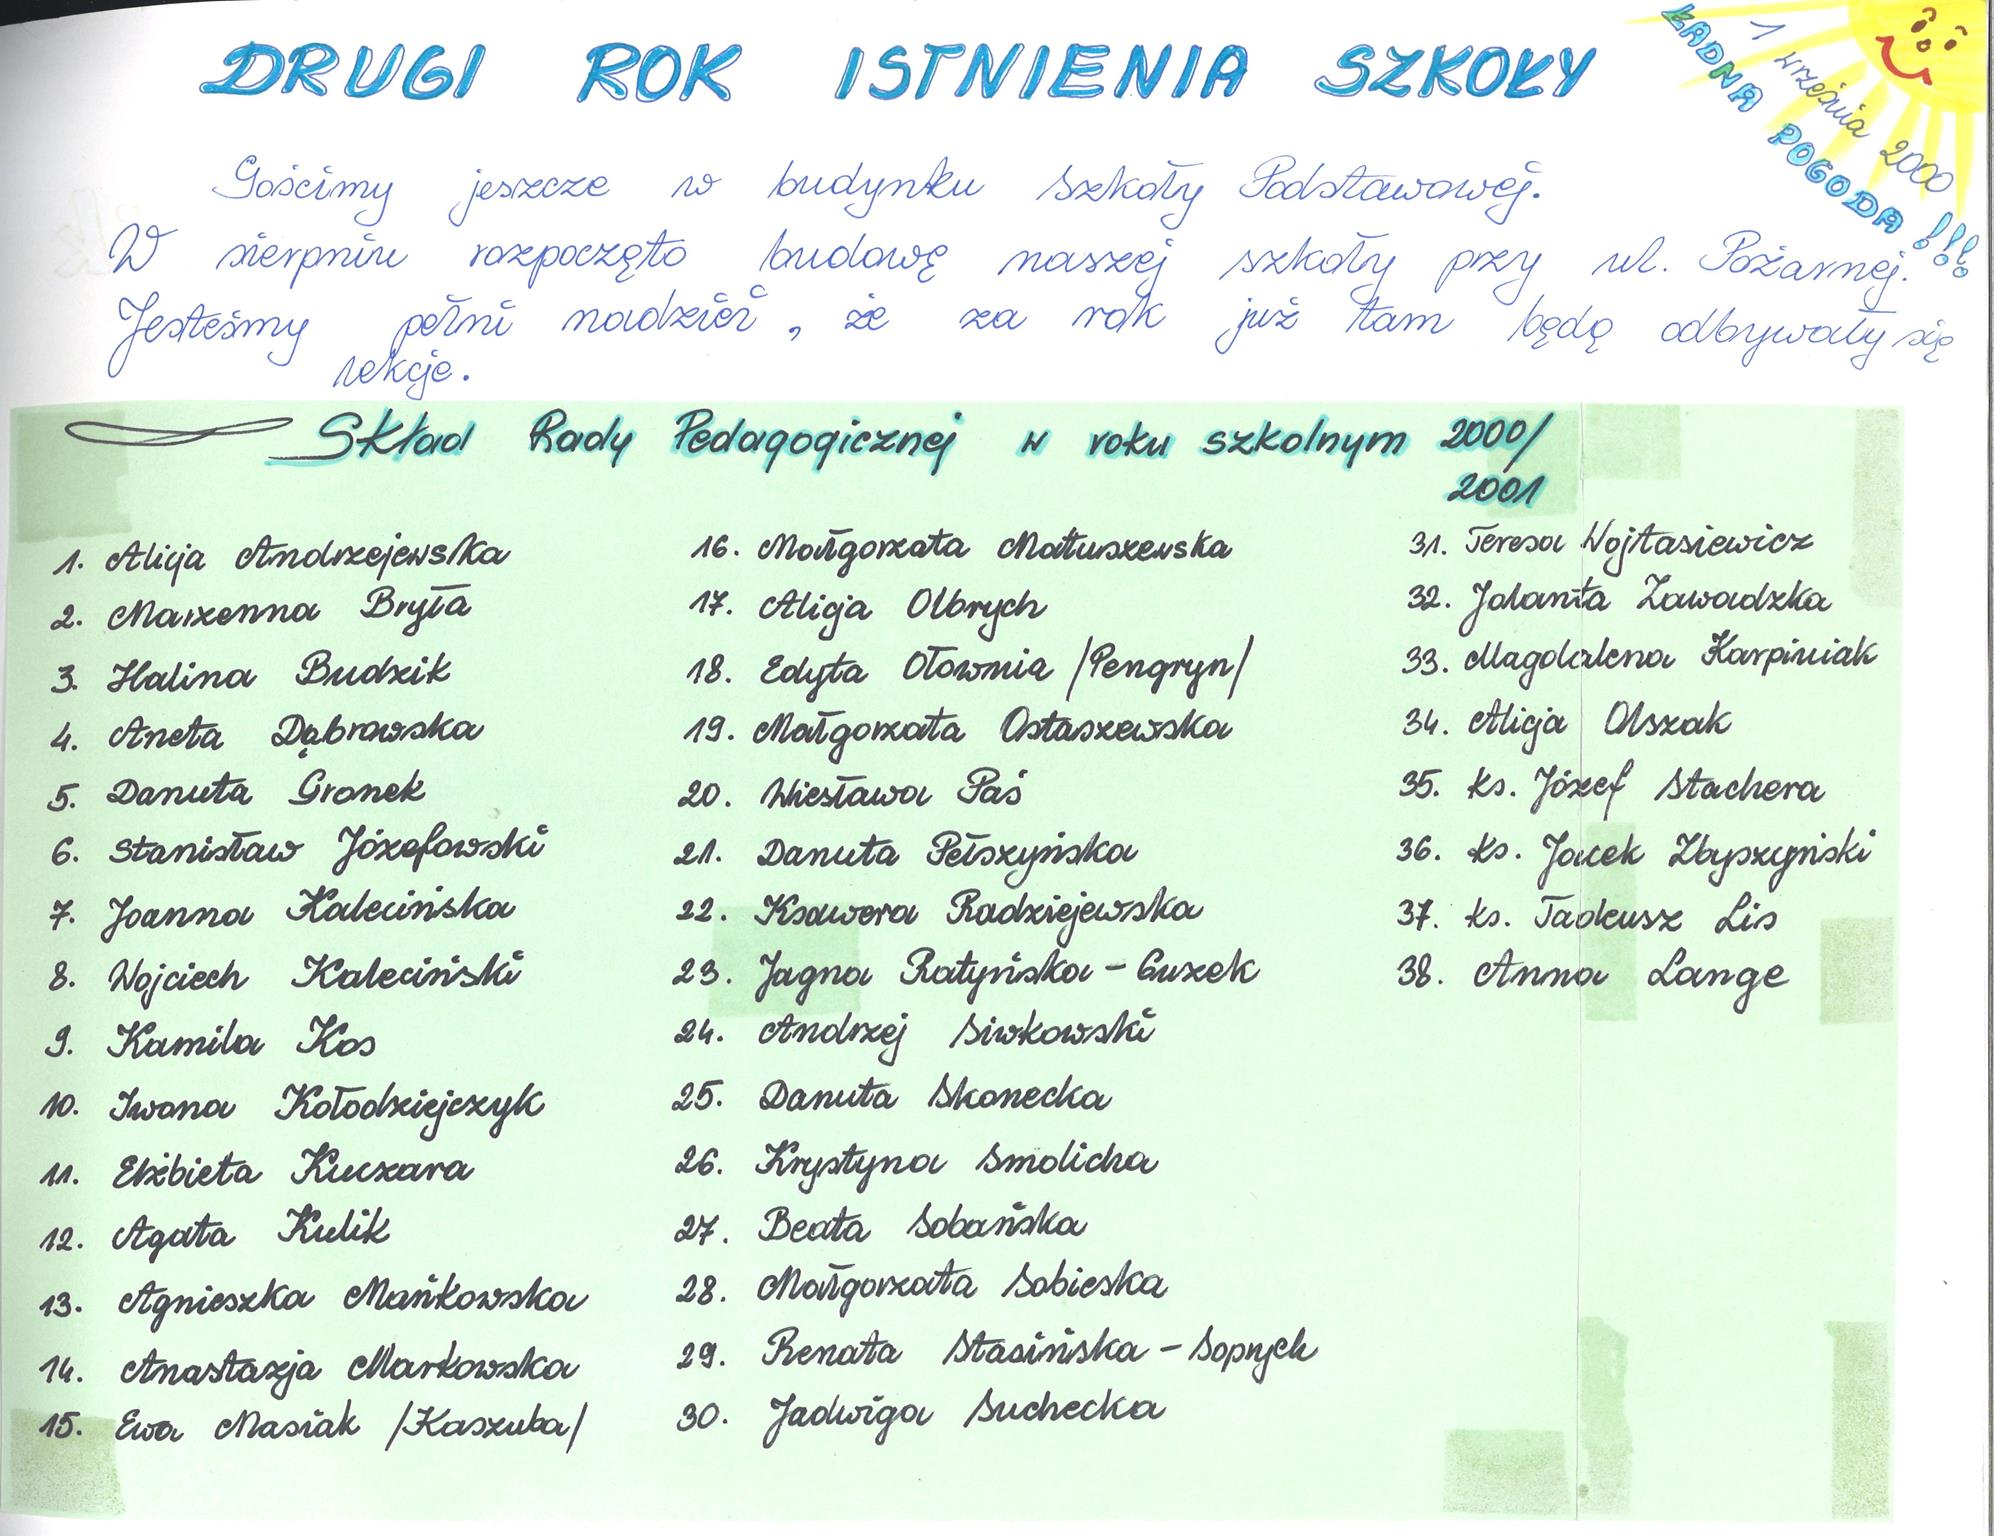 DRUGI ROK ISTNIENIA SZKOŁY
1 września 2000
ŁADNA POGODA !!!
Gościmy jeszcze w budynku Szkoły Podstawowej.
W sierpniu rozpoczęto budowę naszej szkoły przy ul. Pożarnej.
Jesteśmy pełni nadziei, że za rok już tam będą odbywały się
lekcje.
Skład Rady Pedagogicznej w roku szkolnym 2000/
2001
1. Alicja Andrzejewska
2. Marzenna Bryła
3. Halina Budzik
4. Aneta Dąbrowska
5. Danuta Gronek
6. Stanisław Józefowski
7. Joanna Kalecińska
8. Wojciech Kaleciński
9. Kamila Kos
10. Iwona Kołodziejczyk
11. Elżbieta Kuczara
12. Agata Kulik
13. Agnieszka Mańkowska
14. Anastazja Markowska
15. Ewa Masiak /Kaszuba/
16. Małgorzata Matuszewska
17. Alicja Olbrych
18. Edyta Ołownia /Pengryn/
19. Małgorzata Ostaszewska
20. Wiesława Paś
21. Danuta Pełszyńska
22. Ksawera Radziejewska
23. Jagna Ratyńska - Guzek
24. Andrzej Siwkowski
25. Danuta Skonecka
26. Krystyna Smolicha
27. Beata Sobańska
28. Małgorzata Sobieska
29. Renata Stasińska - Sopnych
30. Jadwiga Suchecka
31. Teresa Wojtasiewicz
32. Jolanta Zawadzka
33. Magdalena Karpiniak
34. Alicja Olszak
35. ks. Józef Stachera
36. ks. Jacek Zbyszyński
37. ks. Tadeusz Lis
38. Anna Lange